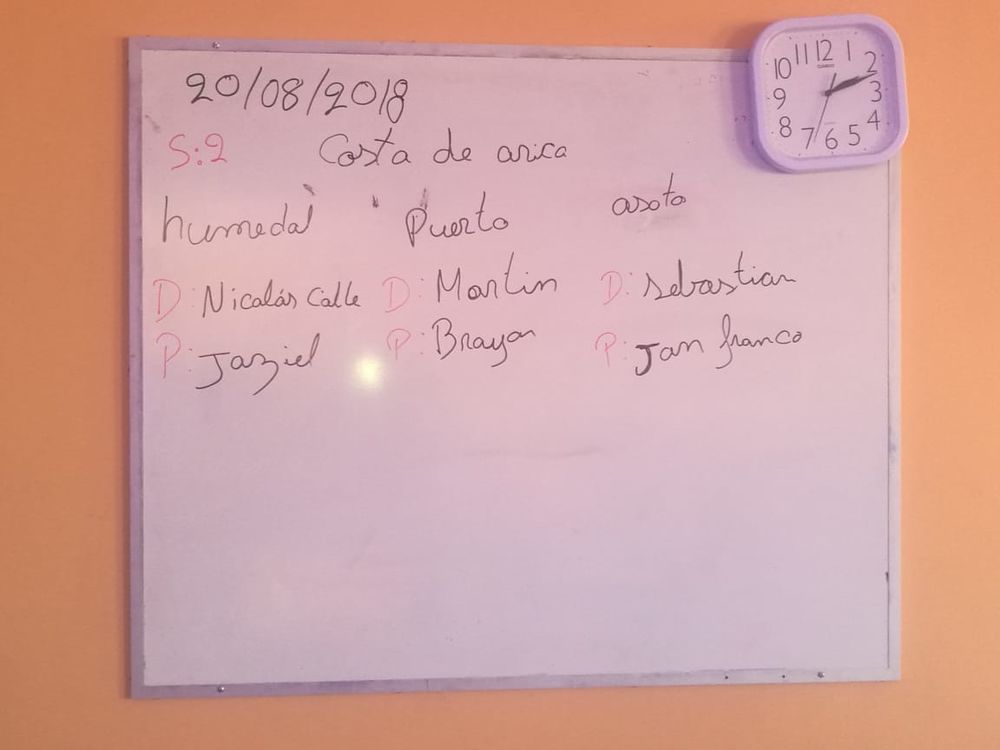 20/08/2018
S:2 Costa de arica
humedal Puerto asota
D: Nicolás Calle D: Martin D: Sebastian
P: Jaziel P: Brayan P: Jan franco
11 12 1
10 2
9 3
8 4
7 6 5